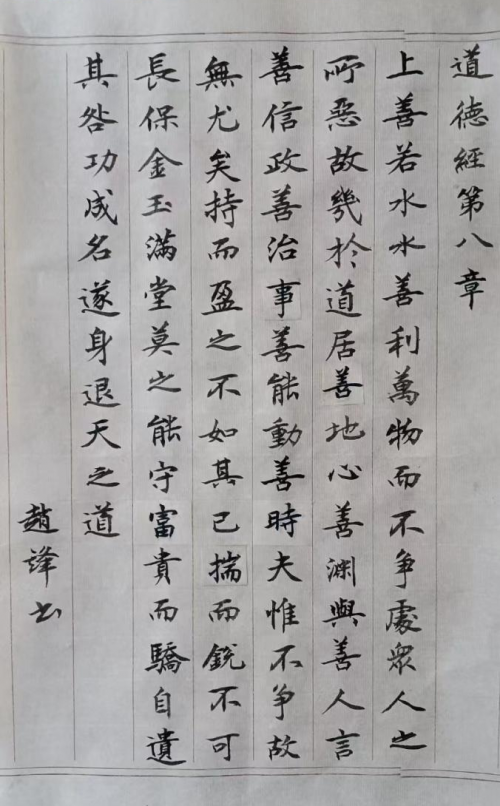 道德經第八章
上善若水水善利萬物而不争處衆人之
所惡故幾於道居善地心善渊與善人言
善信政善治事善能動善時夫惟不争故
無尤矣持而盈之不如其已揣而銳不可
長保金玉滿堂莫之能守富貴而驕自遺
其咎功成名遂身退天之道
趙鋒书